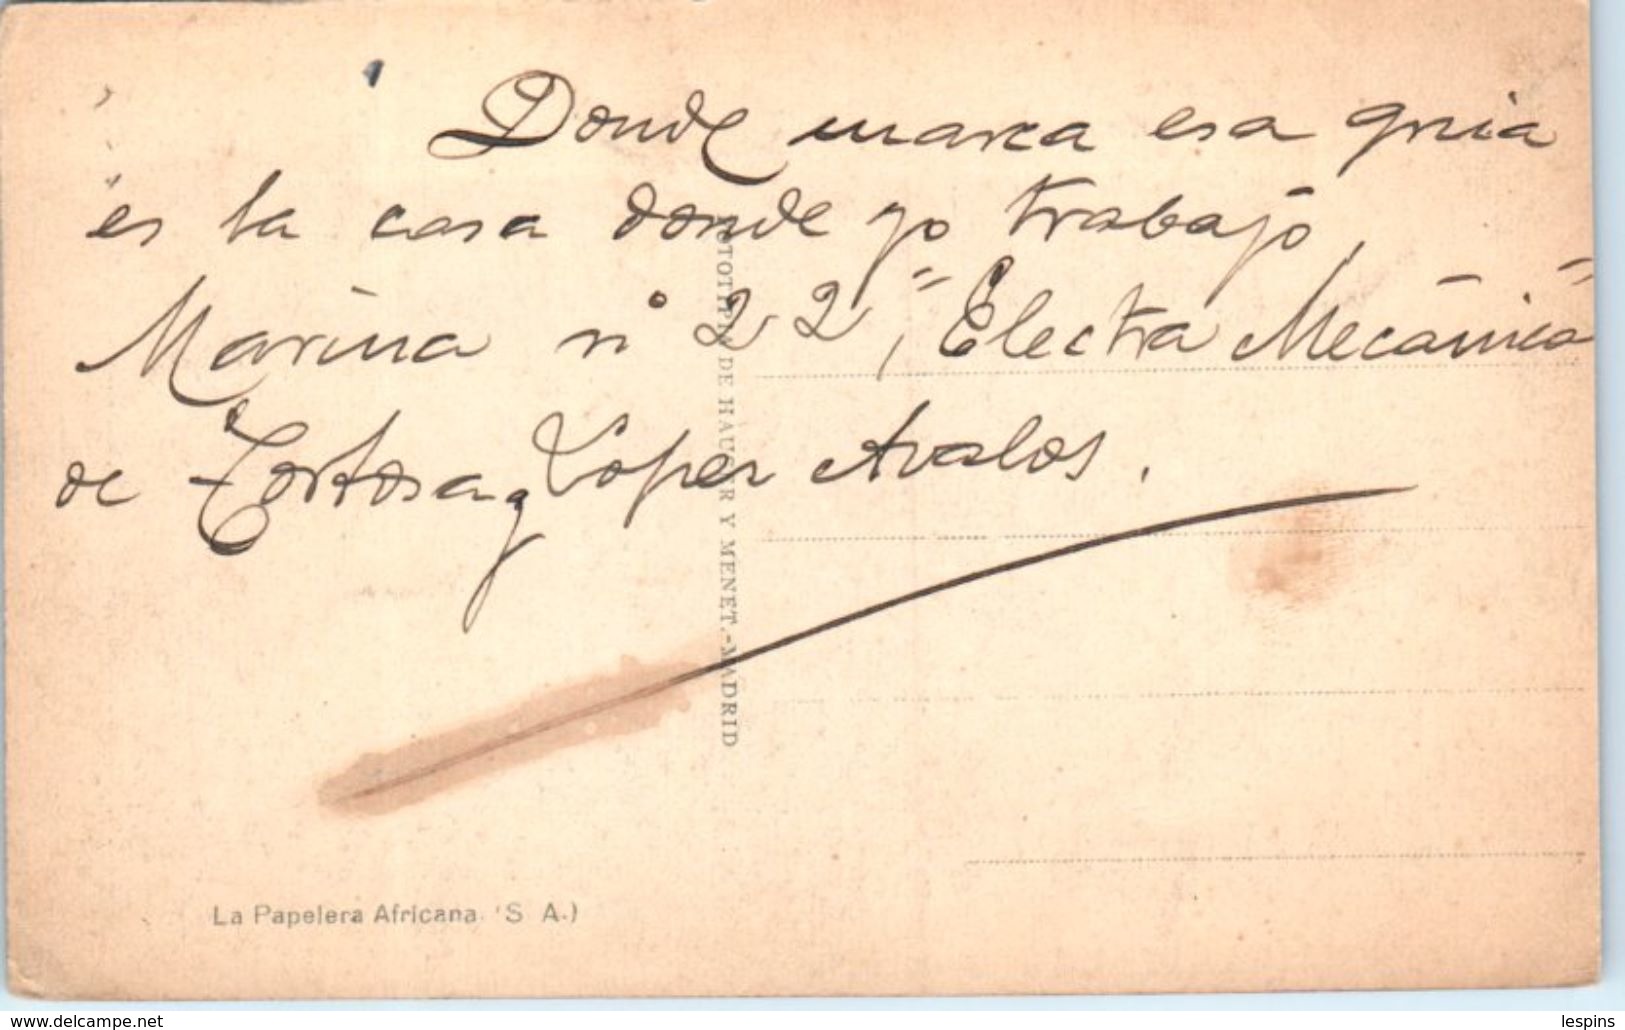 Donde marca esa gruia
es la casa donde yo trabajo,
Marina nº 22, "Electra Mecánica"
de Tortosa y López Avalos.
FOTOTIPIA DE HAUSER Y MENET.-MADRID
La Papelera Africana (S A.)
www.delcampe.net
lespins